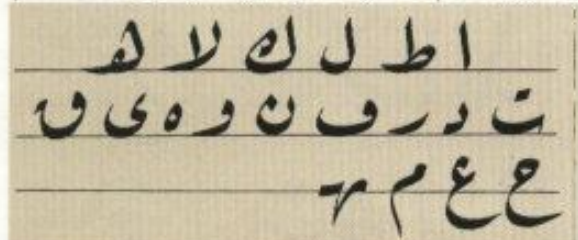 ا ط ل ك لا ه
ت د ر ف ن و ه ى ق
ح ع م ہ